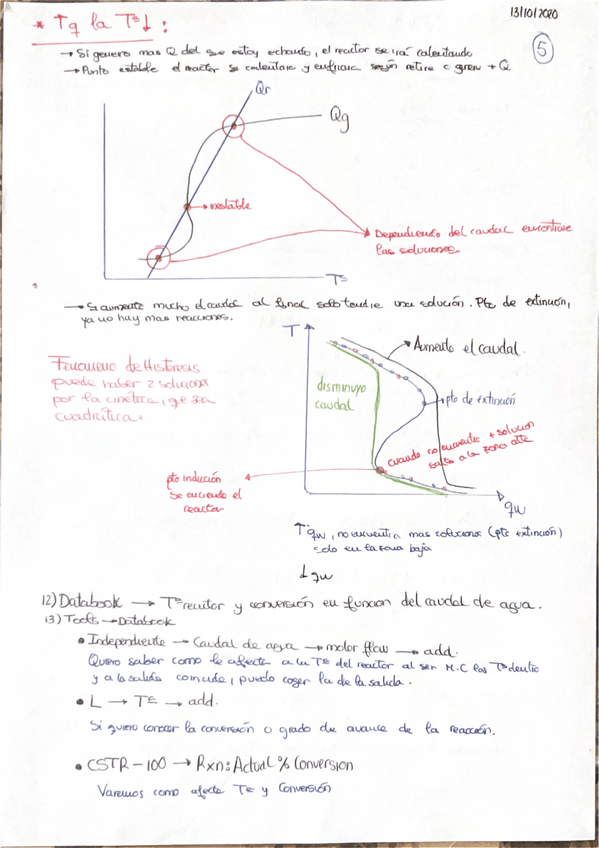 13/10/2020
* ↑q la Tª↓:
5
→ Si genero mas Q del que estoy echando, el reactor se irá calentando
→ Punto estable el reactor se calentara y enfriara según retire o genere + Q
Qr
Qg
→ inestable
Dependiendo del caudal encontrare
las soluciones.
Tª
→ Si aumento mucho el caudal al final solo tendre una solución. Pto de extinción,
ya no hay mas reacciones.
T
Aumento el caudal.
Fenomeno de Histeresis
puede haber 2 soluciones
por la cinética, que sea
cuadrática.
disminuyo
caudal
pto de extinción
cuando no encuentro + solucion
salto a la zona alta
pto inducción
se enciende el
reactor
qw
↑qw, no encuentra mas soluciones (pto extinción)
solo en la zona baja
↓qw
12) Databook → Tª reactor y conversión en funcion del caudal de agua.
13) Tools → Databook
• Independiente → Caudal de agua → molar flow → add.
Quiero saber como le afecta a la Tª del reactor al ser M.C las Tª dentro
y a la salida coincide, puedo coger la de la salida.
• L → Tª → add.
Si quiero conocer la conversión o grado de avance de la reacción.
• CSTR-100 → Rxn: Actual % Conversion
Varemos como afecta Tª y Conversión